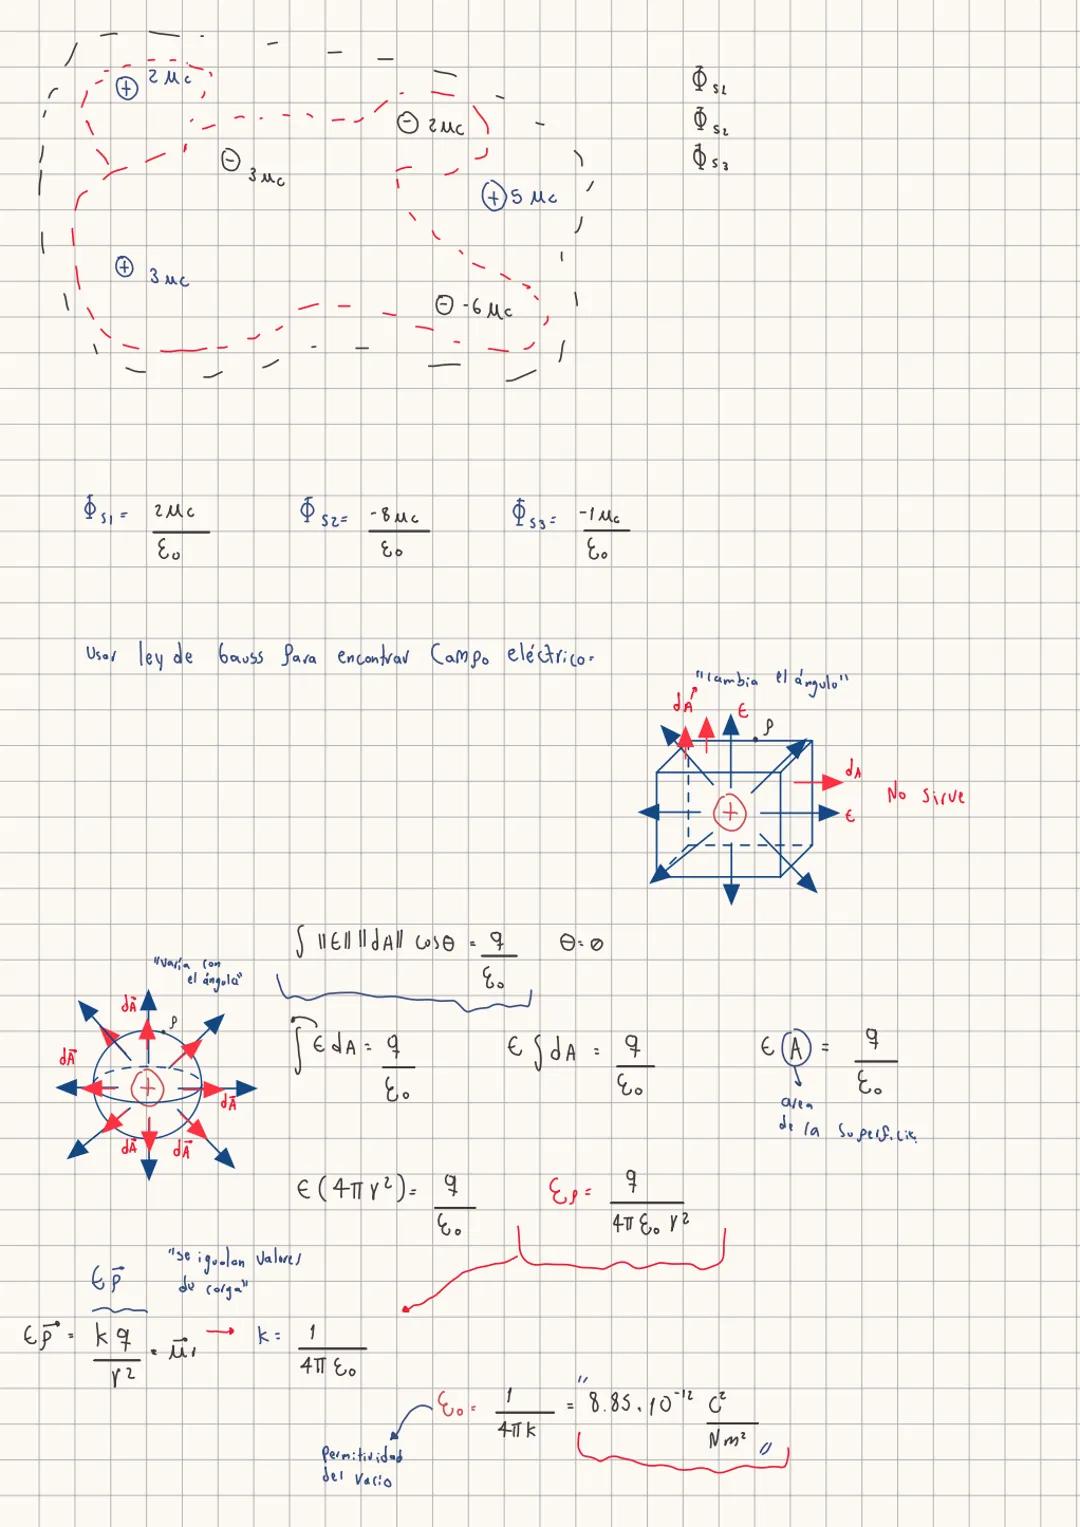 ⊕ 2 μc
Φ S1
⊖ 2 μc
Φ S2
⊖ 3 μc
Φ S3
⊕ 5 μc
⊕ 3 μc
⊖ -6 μc
Φ S1 = 2μc / ε₀    Φ S2 = -8 μc / ε₀    Φ S3 = -1 μc / ε₀
Usar ley de Gauss Para encontrar Campo eléctrico.
"Cambia el ángulo"
dA⃗ E P
dA
No sirve
E
∫ ||E|| ||dA|| cosθ = q / ε₀    θ = 0
"Varía con
el ángulo"
dA⃗ P
∫ E dA = q / ε₀    E ∫ dA = q / ε₀    E (A) = q / ε₀
dA⃗
dA⃗
area
de la superficie
dA⃗ dA⃗
E (4π r²) = q / ε₀    Ep = q / 4π ε₀ r²
"se igualan valores
de carga"
E p⃗
E p⃗ = k q / r² · μ⃗r → k = 1 / 4π ε₀
ε₀ = 1 / 4π k = "8.85 . 10⁻¹² C² / N m²"
Permitividad
del vacío